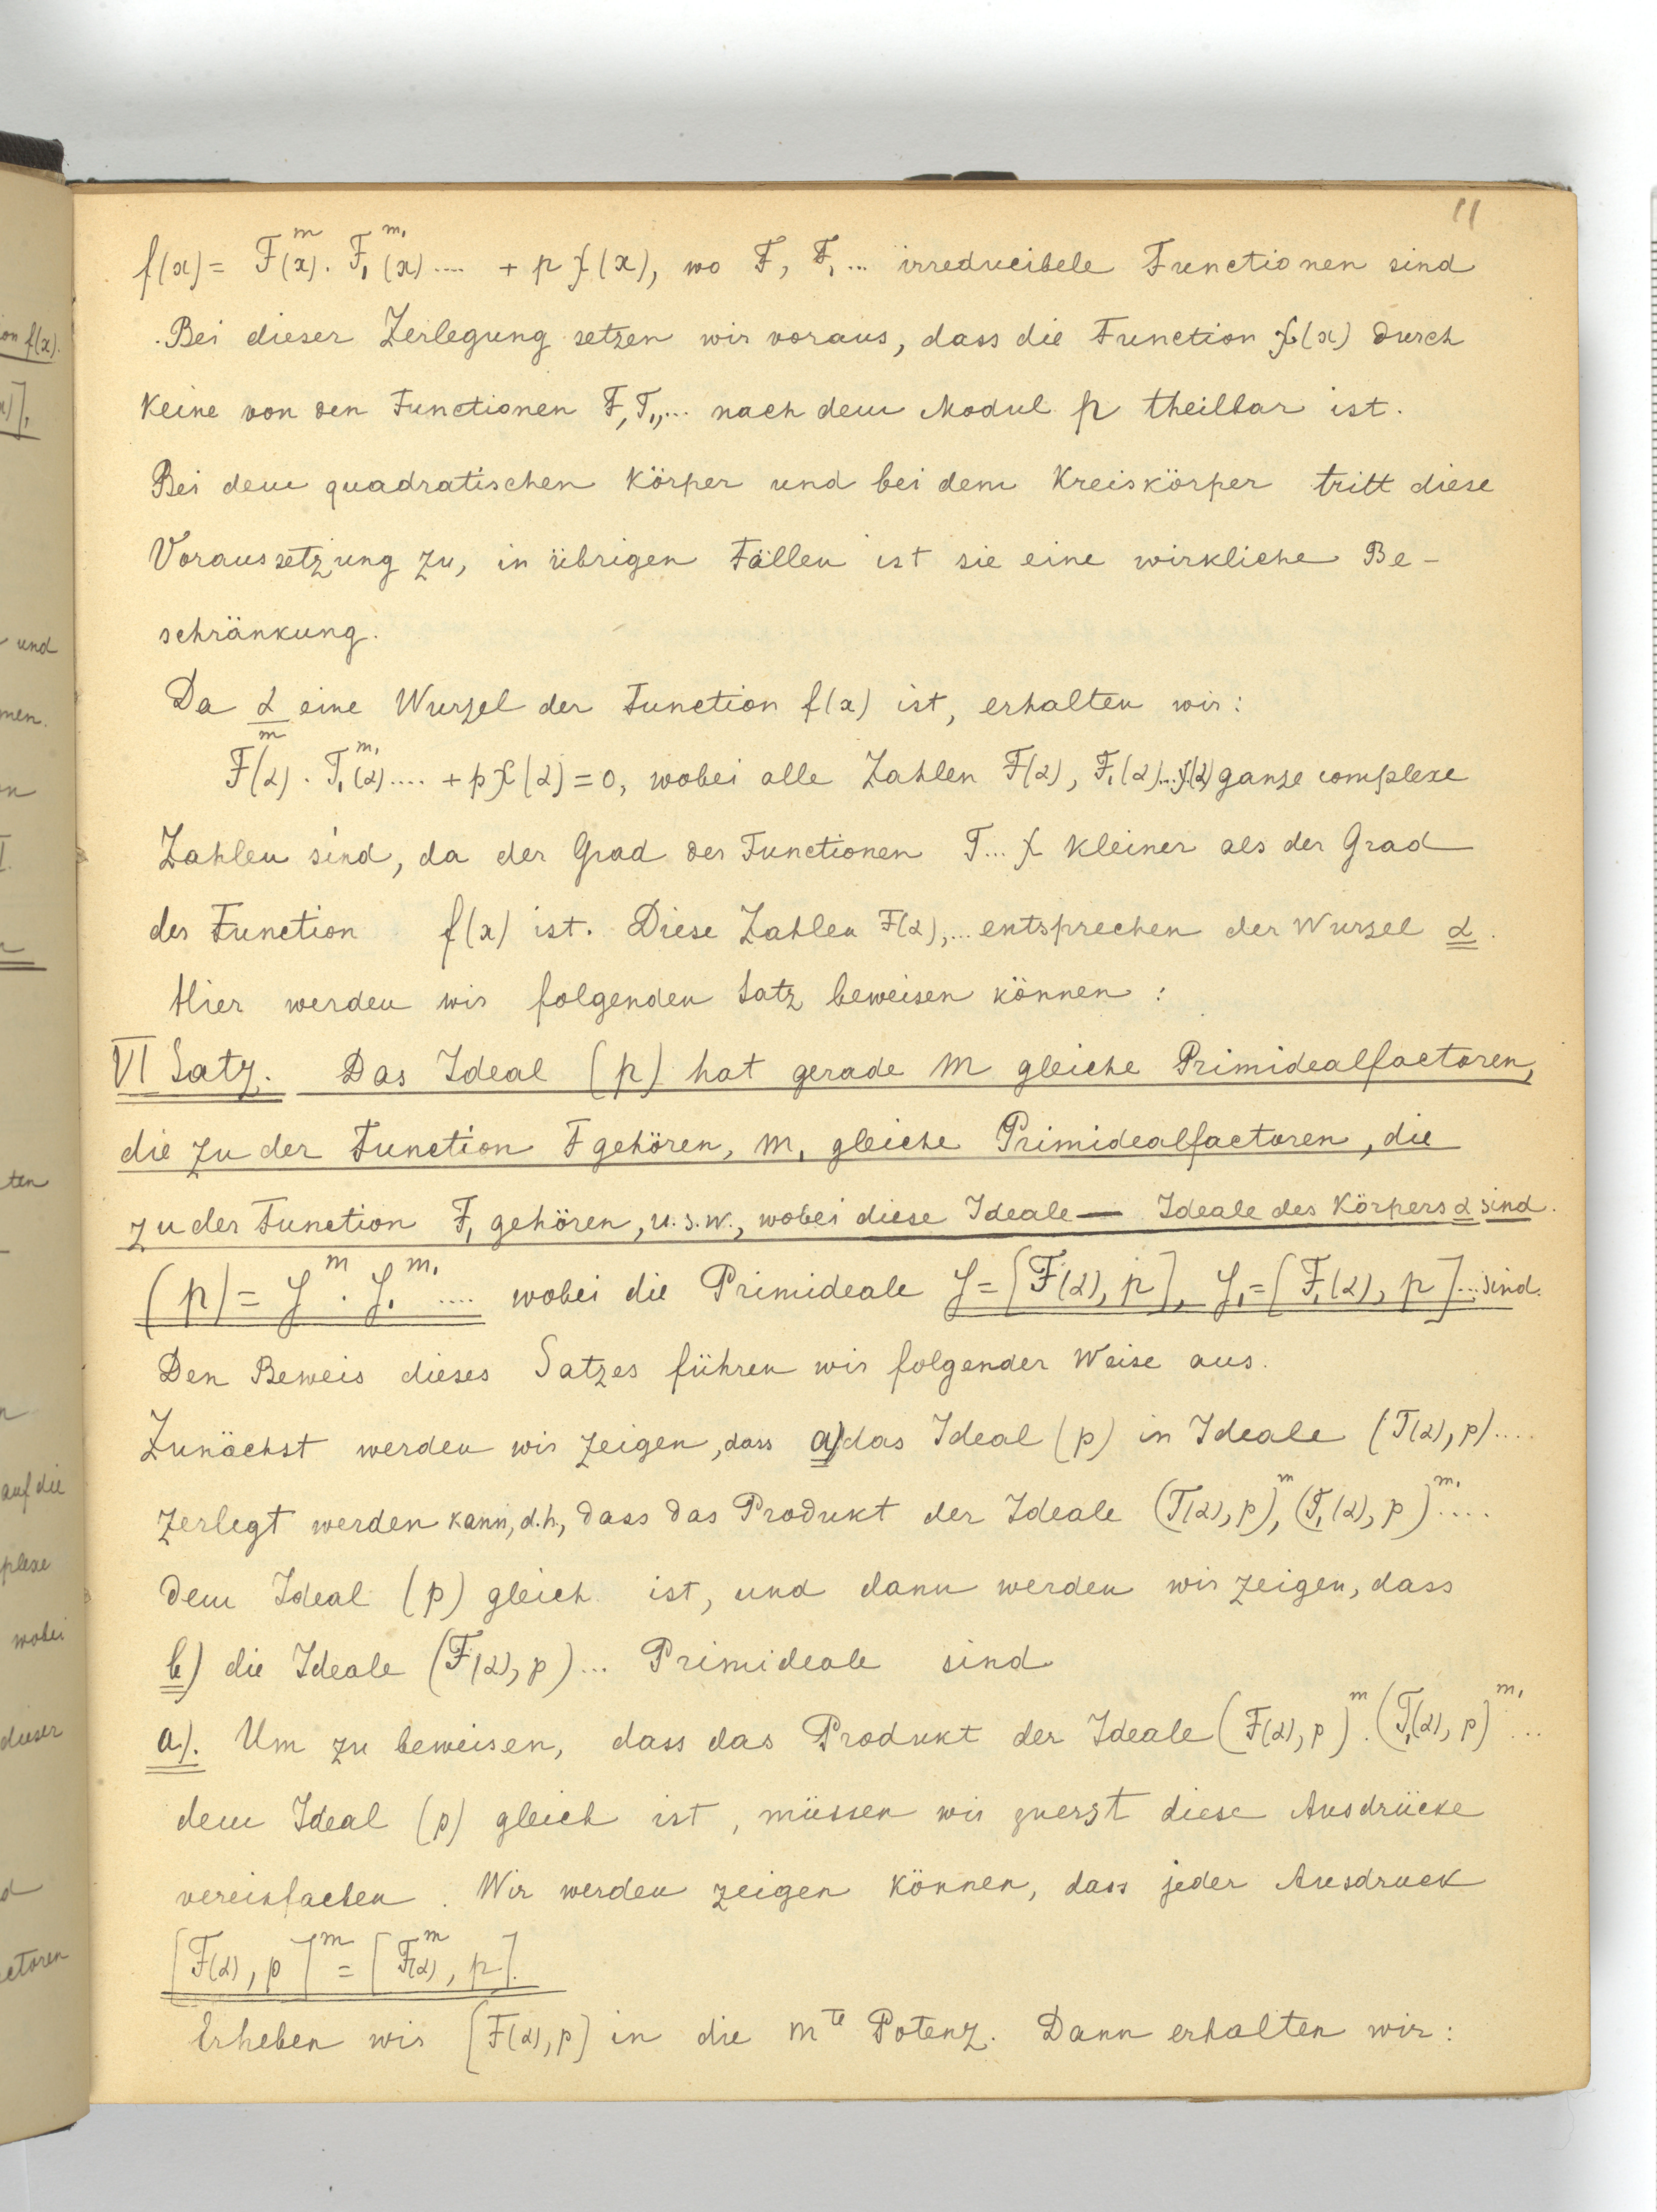 11
f(x) = F^m(x). F₁^m₁(x) .... + p χ(x), wo F, F₁... irreducibele Functionen sind
Bei dieser Zerlegung setzen wir voraus, dass die Function χ(x) durch
keine von den Functionen F, F₁,... nach dem Modul p theilbar ist.
Bei dem quadratischen Körper und bei dem Kreiskörper tritt diese
Voraussetzung zu, in übrigen Fällen ist sie eine wirkliche Be-
schränkung.
Da α eine Wurzel der Function f(x) ist, erhalten wir:
F^m(α) . F₁^m₁(α) .... + pχ(α) = 0, wobei alle Zahlen F(α), F₁(α)...χ(α) ganze complexe
Zahlen sind, da der Grad der Functionen F... χ kleiner als der Grad
der Function f(x) ist. Diese Zahlen F(α),... entsprechen der Wurzel α.
Hier werden wir folgenden Satz beweisen können:
VI Satz. Das Ideal (p) hat gerade m gleiche Primidealfactoren,
die zu der Function F gehören, m₁ gleiche Primidealfactoren, die
zu der Function F₁ gehören, u.s.w., wobei diese Ideale — Ideale des Körpers α sind.
(p) = J^m . J₁^m₁ .... wobei die Primideale J = [F(α), p], J₁ = [F₁(α), p]... sind.
Den Beweis dieses Satzes führen wir folgender Weise aus.
Zunächst werden wir zeigen, dass a) das Ideal (p) in Ideale (F(α), p)....
zerlegt werden kann, d.h., dass das Produkt der Ideale (F(α), p)^m, (F₁(α), p)^m₁ ....
dem Ideal (p) gleich ist, und dann werden wir zeigen, dass
b) die Ideale (F(α), p)... Primideale sind
a). Um zu beweisen, dass das Produkt der Ideale (F(α), p)^m . (F₁(α), p)^m₁ ...
dem Ideal (p) gleich ist, müssen wir zuerst diese Ausdrücke
vereinfachen. Wir werden zeigen können, dass jeder Ausdruck
[F(α), p]^m = [F^m(α), p].
Erheben wir [F(α), p] in die m^te Potenz. Dann erhalten wir: